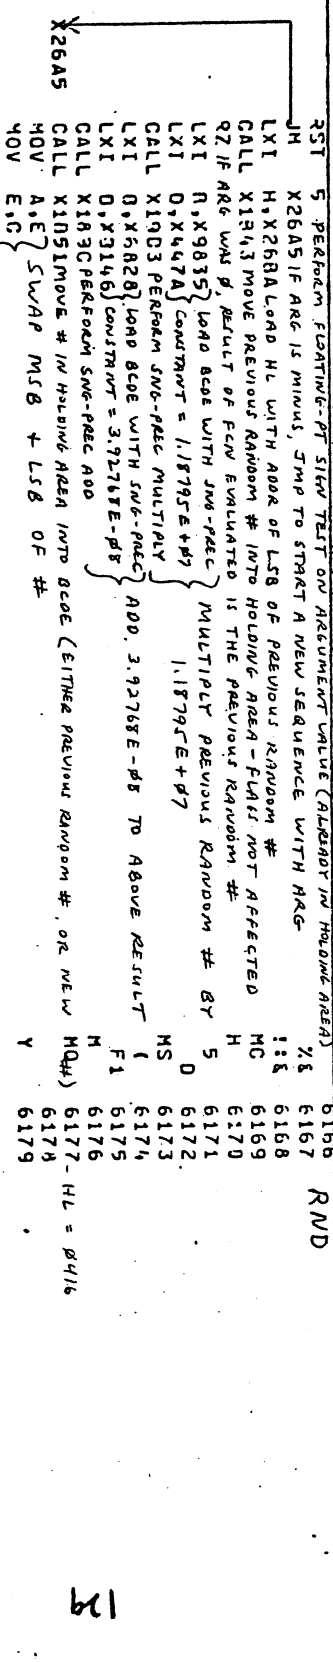 RST 5 PERFORM FLOATING-PT SIGN TEST ON ARGUMENT VALUE (ALREADY IN HOLDING AREA) 6166
JM X26A5 IF ARG IS MINUS, JMP TO START A NEW SEQUENCE WITH ARG %& 6167 RND
LXI H,X26BA LOAD HL WITH ADDR OF LSB OF PREVIOUS RANDOM # !:& 6168
CALL X1843 MOVE PREVIOUS RANDOM # INTO HOLDING AREA - FLAGS NOT AFFECTED MC 6169
RZ IF ARG WAS Ø, RESULT OF FCN EVALUATED IS THE PREVIOUS RANDOM # H 6170
LXI B,X9835 } LOAD BCDE WITH SNG-PREC } MULTIPLY PREVIOUS RANDOM # BY 5 6171
LXI D,X447A } CONSTANT = 1.18795E+Ø7 } 1.18795E+Ø7 D 6172
CALL X19D3 PERFORM SNG-PREC MULTIPLY MS 6173
LXI B,X6828 } LOAD BCDE WITH SNG-PREC } ADD. 3.92768E-Ø8 TO ABOVE RESULT ( 6174
LXI D,X3146 } CONSTANT = 3.92768E-Ø8 F1 6175
CALL X189C PERFORM SNG-PREC ADD M 6176
CALL X1851 MOVE # IN HOLDING AREA INTO BCDE (EITHER PREVIOUS RANDOM #, OR NEW #) MQ 6177 - HL = Ø416
X26A5 MOV A,E } SWAP MSB + LSB OF # 6178
MOV E,C } Y 6179
129